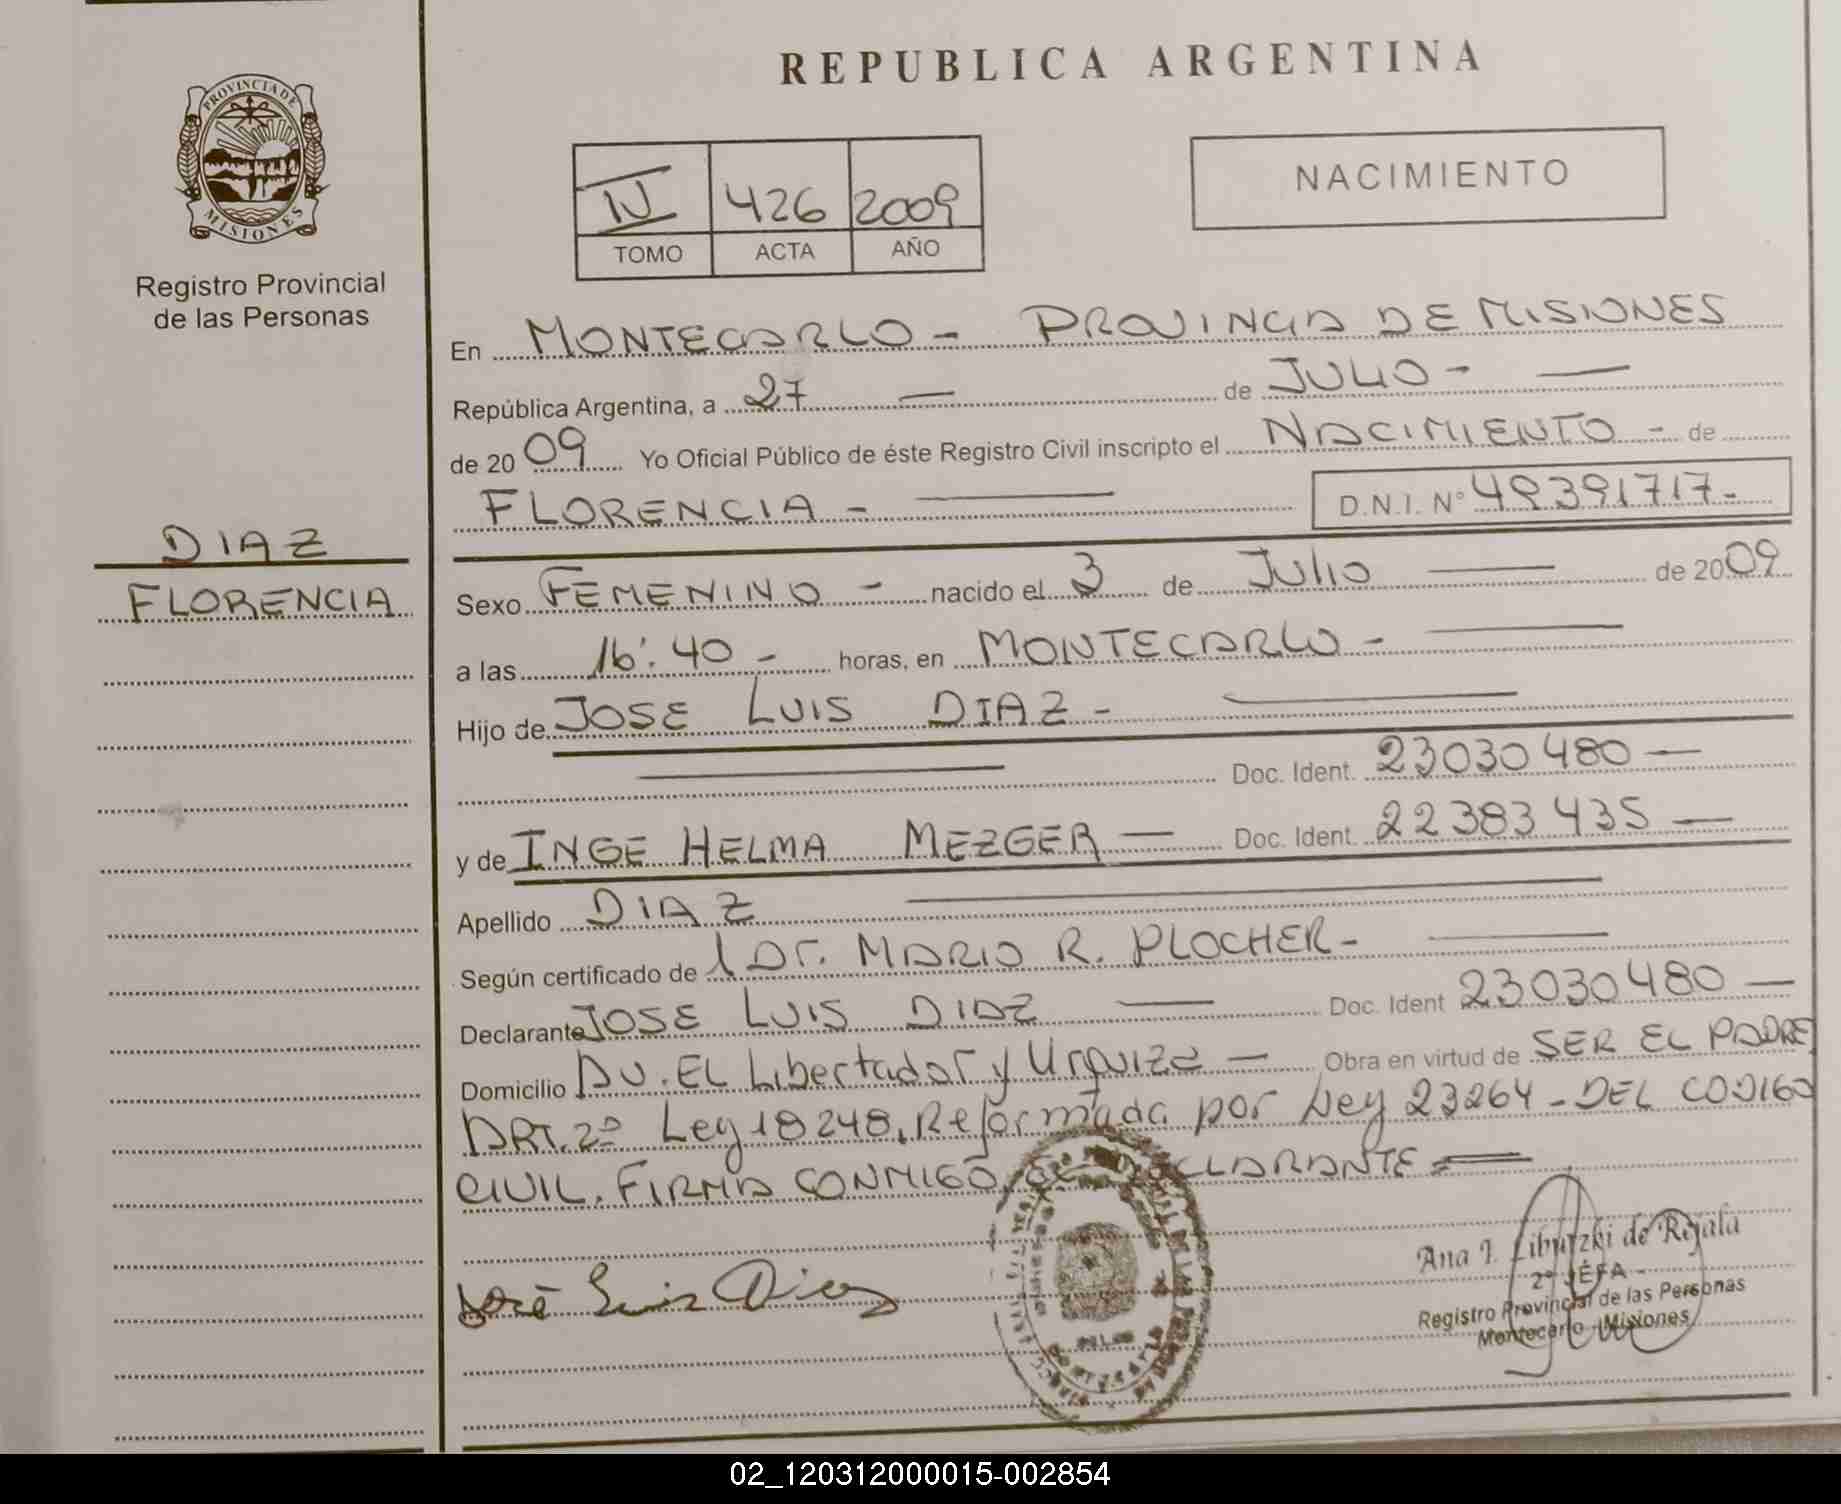 REPUBLICA ARGENTINA
PROVINCIA DE
MISIONES
Registro Provincial
de las Personas
IV 426 2009
TOMO ACTA AÑO
NACIMIENTO
En MONTECARLO - PROVINCIA DE MISIONES
República Argentina, a 27 — de JULIO - —
de 20 09 Yo Oficial Público de éste Registro Civil inscripto el NACIMIENTO - de
FLORENCIA - — D.N.I. N° 49391717-
DIAZ
FLORENCIA
Sexo FEMENINO - nacido el 3 de Julio — de 20 09
a las 16:40 - horas, en MONTECARLO - —
Hijo de JOSE LUIS DIAZ - —
— Doc. Ident. 23030480 —
y de INGE HELMA MEZGER — Doc. Ident. 22383435 —
Apellido DIAZ —
Según certificado de Dr. MARIO R. PLOCHER - —
Declarante JOSE LUIS DIAZ — Doc. Ident 23030480 —
Domicilio AV. EL Libertador y Urquiza — Obra en virtud de SER EL PADRE
ART. 2º Ley 18248, Reformada por Ley 23264 - DEL CODIGO
CIVIL. FIRMA CONMIGO DECLARANTE =
José Luis Diaz
Ana I. de Rejala
2º JEFA
Registro Provincial de las Personas
Montecarlo - Misiones
02_120312000015-002854